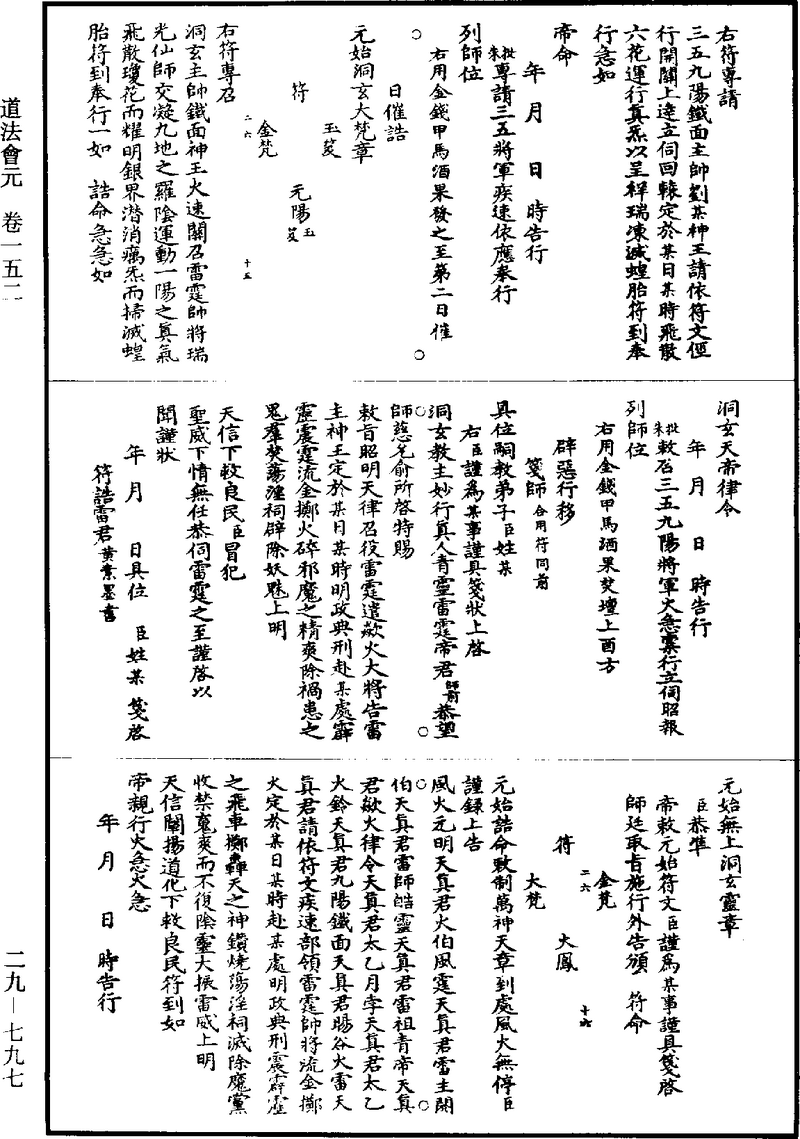 道法會元　卷一五二
右符專請
三五九陽鐵面主帥劉某神王請依符文俓
行開關上達立伺回轅定於某日某時飛散
六花運行真炁以呈禎瑞凍滅蝗胎符到奉
行急如
帝命
年　月　日　時告行
批朱專請三五將軍疾速依應奉行
列師位
右用金錢甲馬酒果發之至第二日催
○　○
日催誥
元始洞玄大梵章
玉笈
符　元陽玉笈
金梵
二六　十五
右符專召
洞玄主帥鐵面神王火速關召雷霆師將瑞
光仙師交凝九地之羅陰運動一陽之真氣
飛散瓊花而耀明銀界潛消癘炁而掃滅蝗
胎符到奉行一如　誥命急急如
洞玄天帝律令
年　月　日　時告行
批朱敕召三五九陽將軍火急稟行立伺昭報
列師位
右用金錢甲馬酒果焚壇上酉方
辟惡行移
箋師合用符同前
具位嗣教弟子臣姓某
右臣謹為某事謹具箋狀上啓
洞玄教主妙行真人青靈雷霆帝君師前恭望
○　○
師慈允俞所啓特賜
敕旨昭明天律召役雷霆遣歘火大將告雷
主神王定於某日某時明政典刑赴某處霹
靂震霆流金擲火碎邪魔之精爽除禍患之
鬼羣焚蕩淫祠辟除妖魅上明
天信下救良民臣冒犯
聖威下情無任恭伺雷霆之至謹啓以
聞謹狀
年　月　日具位　臣姓某　箋啓
符誥雷君黄素墨書
元始無上洞玄靈章
臣恭準
帝敕元始符文臣謹為某事謹具箋啓
師廷取旨施行外告頒　符命
金梵
符　大鳳
大梵
二六　十六
元始誥命敷制萬神天章到處風火無停臣
謹錄上告
風火元明天真君火伯風霆天真君雷主闕
○　○
伯天真君雷師皓靈天真君雷祖青帝天真
君歘火律令天真君太乙月孛天真君太乙
火鈴天真君九陽鐵面天真君暘谷火雷天
真君請依符文疾速部領雷霆師將流金擲
火定於某日某時赴某處明政典刑震霹靂
之飛車擲轟天之神鑽燒蕩淫祠滅除魔黨
收禁鬼爽而不復陰靈大振雷威上明
天信闡揚道化下救良民符到如
帝親行火急火急
年　月　日　時告行
二九—七九七